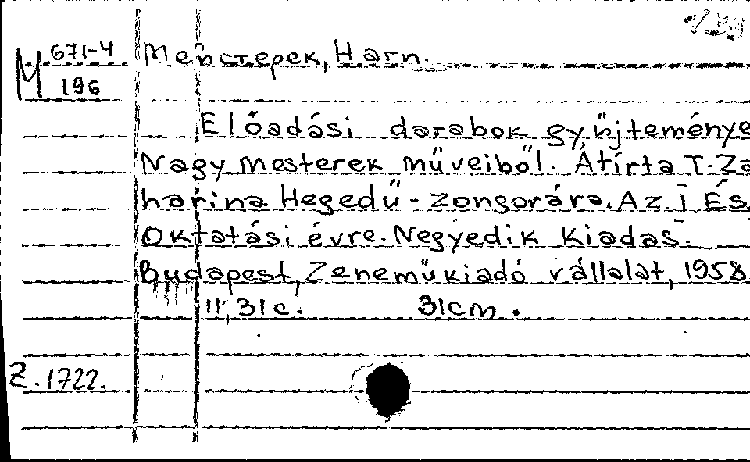 671-4
М
196
Мевстерек, Нагп.
Előadási darabok gyűjteménye
Nagy mesterek műveiből. Átirta T. Za
harina Hegedű - zongorára. Az I És
Oktatási évre. Negyedik Kiadas.
Budapest, Zeneműkiadó vállalat, 1958
11, 31c. 31cm.
Z. 1722.